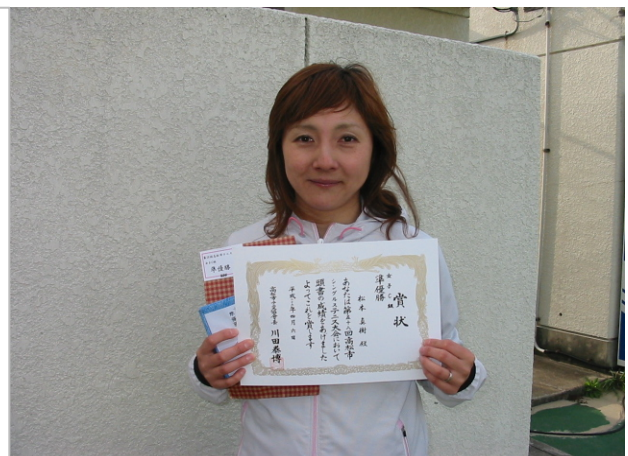 賞状
女子C級
準優勝
松本 直樹 殿
あなたは第五十 回高松市
シングルステニス大会において
頭書の成績をあげました
よってこれを賞します
平成 年四月六日
高松市テニス協会会長 川田泰博
準優勝